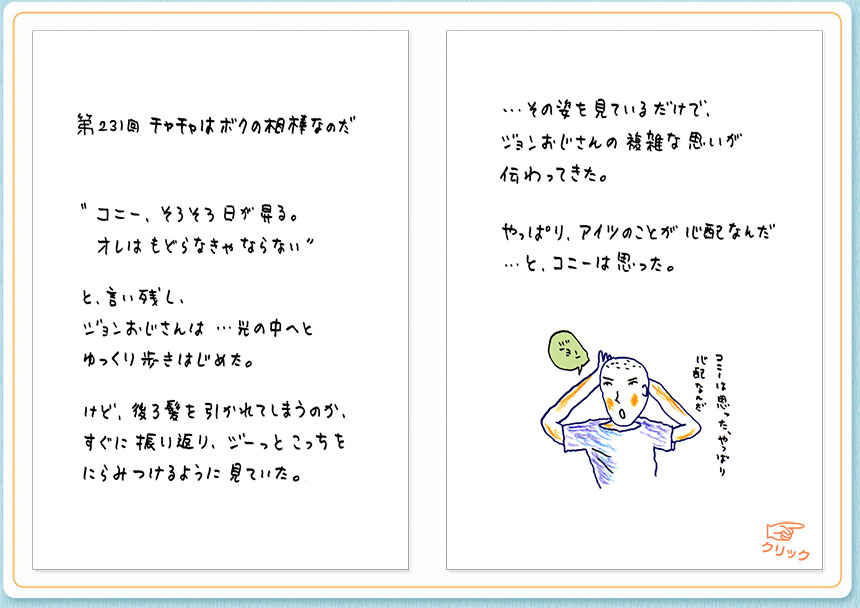 第231回 チャチャはボクの相棒なのだ
“コニー、そろそろ日が昇る。
オレはもどらなきゃならない”
と、言い残し、
ジョンおじさんは…光の中へと
ゆっくり歩きはじめた。
けど、後ろ髪を引かれてしまうのか、
すぐに振り返り、ジーっとこっちを
にらみつけるように見ていた。
…その姿を見ているだけで、
ジョンおじさんの複雑な思いが
伝わってきた。
やっぱり、アイツのことが心配なんだ
…と、コニーは思った。
ジョン
コニーは思った、やっぱり
心配なんだ
クリック